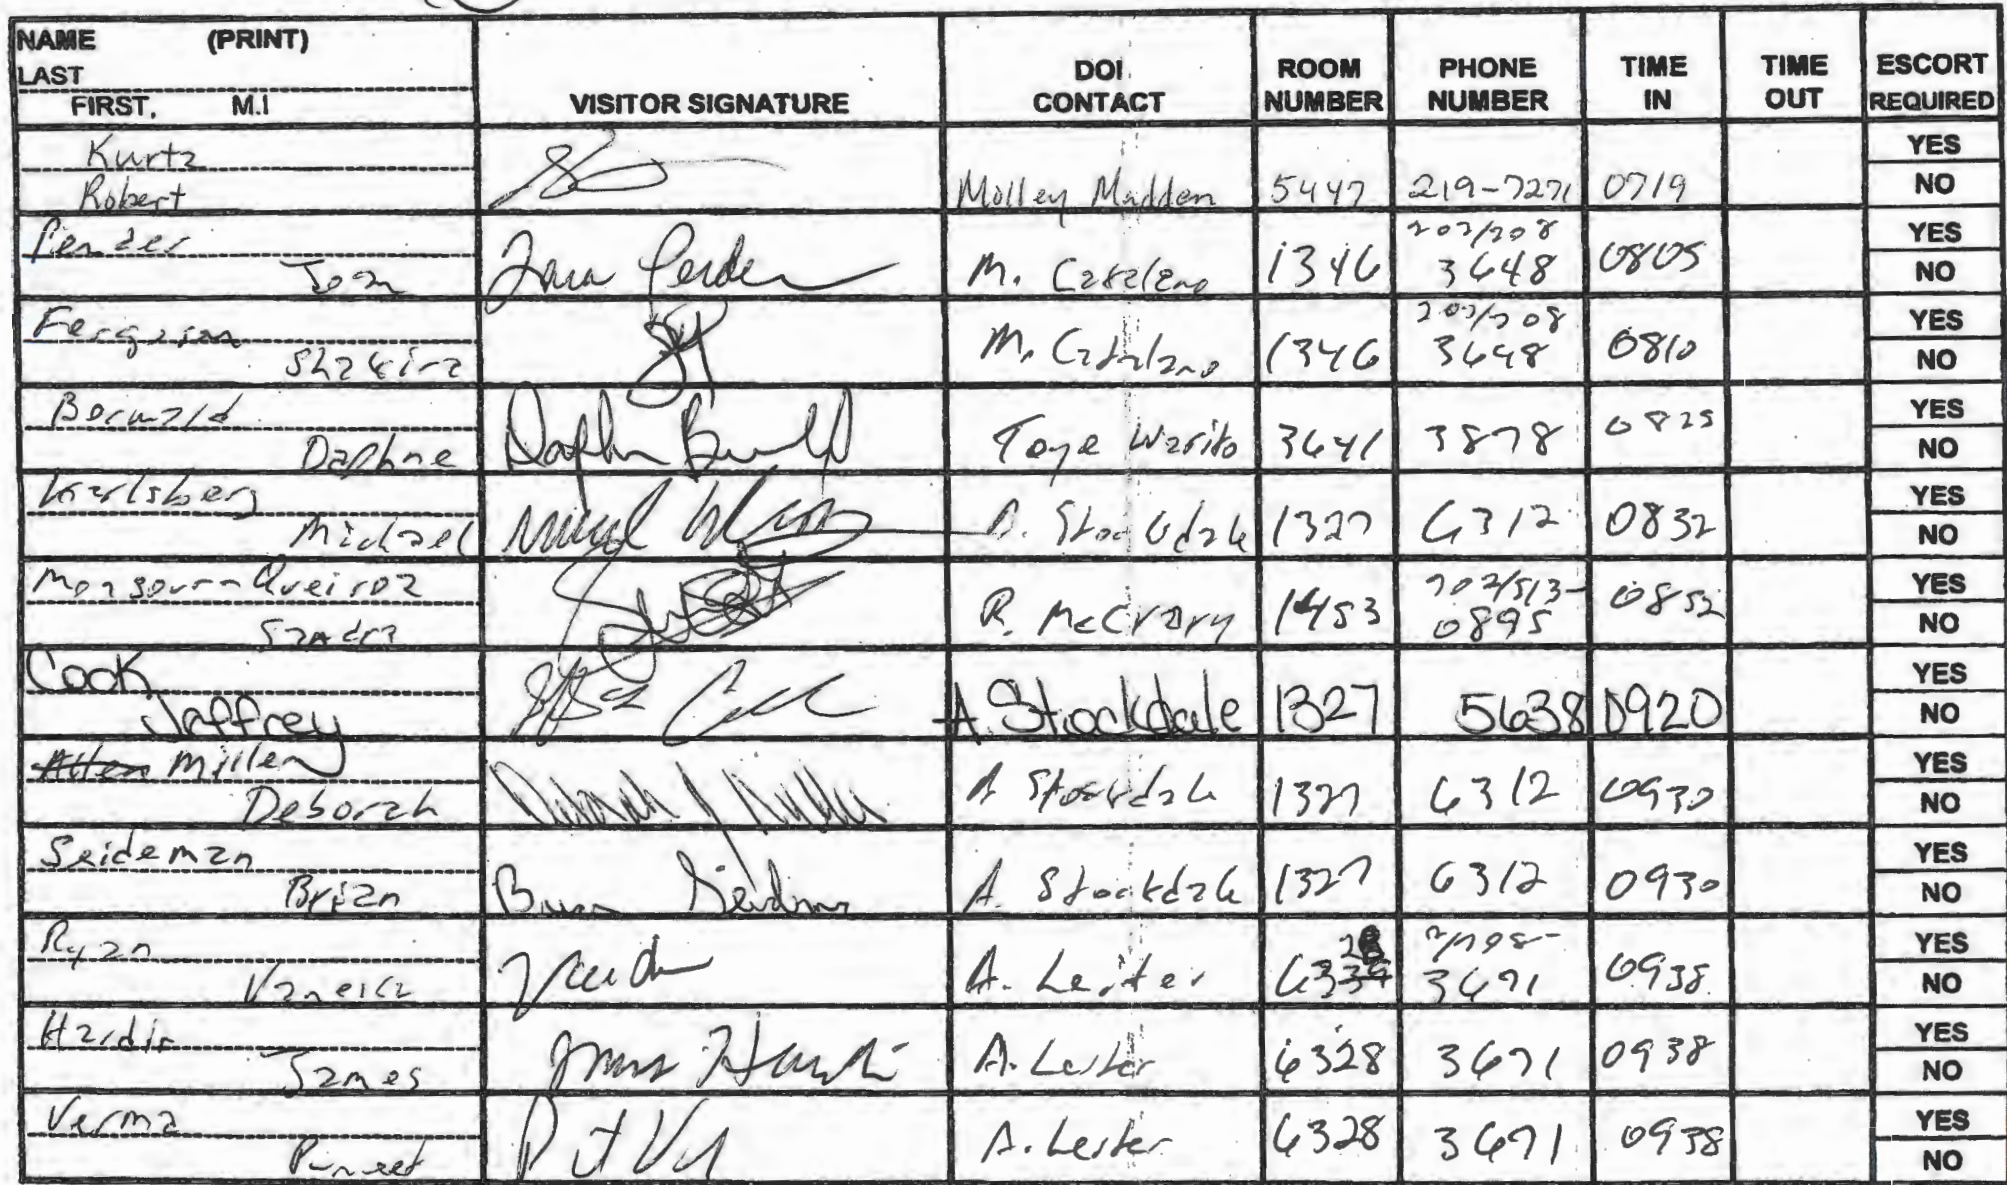 NAME (PRINT)
LAST
FIRST, M.I
VISITOR SIGNATURE
DOI CONTACT
ROOM NUMBER
PHONE NUMBER
TIME IN
TIME OUT
ESCORT REQUIRED
Kurtz
Robert
Molley Madden 5447 219-7271 0719 YES NO
Pender
Joan
M. Catalano 1346 202/208 3648 0805 YES NO
Ferguson
Shakira
M. Catalano 1346 202/208 3648 0810 YES NO
Daphne
3641 3878 0825 YES NO
Karlsberg
Michael
Stockdale 1327 6312 0832 YES NO
Sandra
R. McCrary 1453 202/513-0895 0852 YES NO
Cook
Jeffrey
A. Stockdale 1327 5638 0920 YES NO
Allen Miller
Deborah
A Stockdale 1327 6312 0930 YES NO
Seideman
Brian
A. Stockdale 1327 6312 0930 YES NO
Ryan
A. Lester 3671 0938 YES NO
Hardin
James
A. Lester 6328 3671 0938 YES NO
Verma
Puneet
A. Lester 6328 3671 0938 YES NO